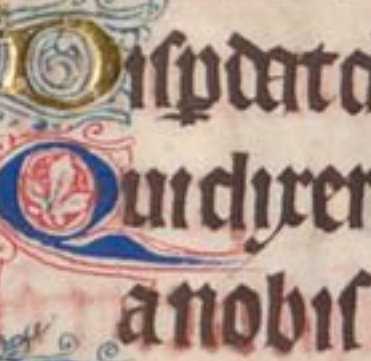 Dispdatd
Quidixer
anobis